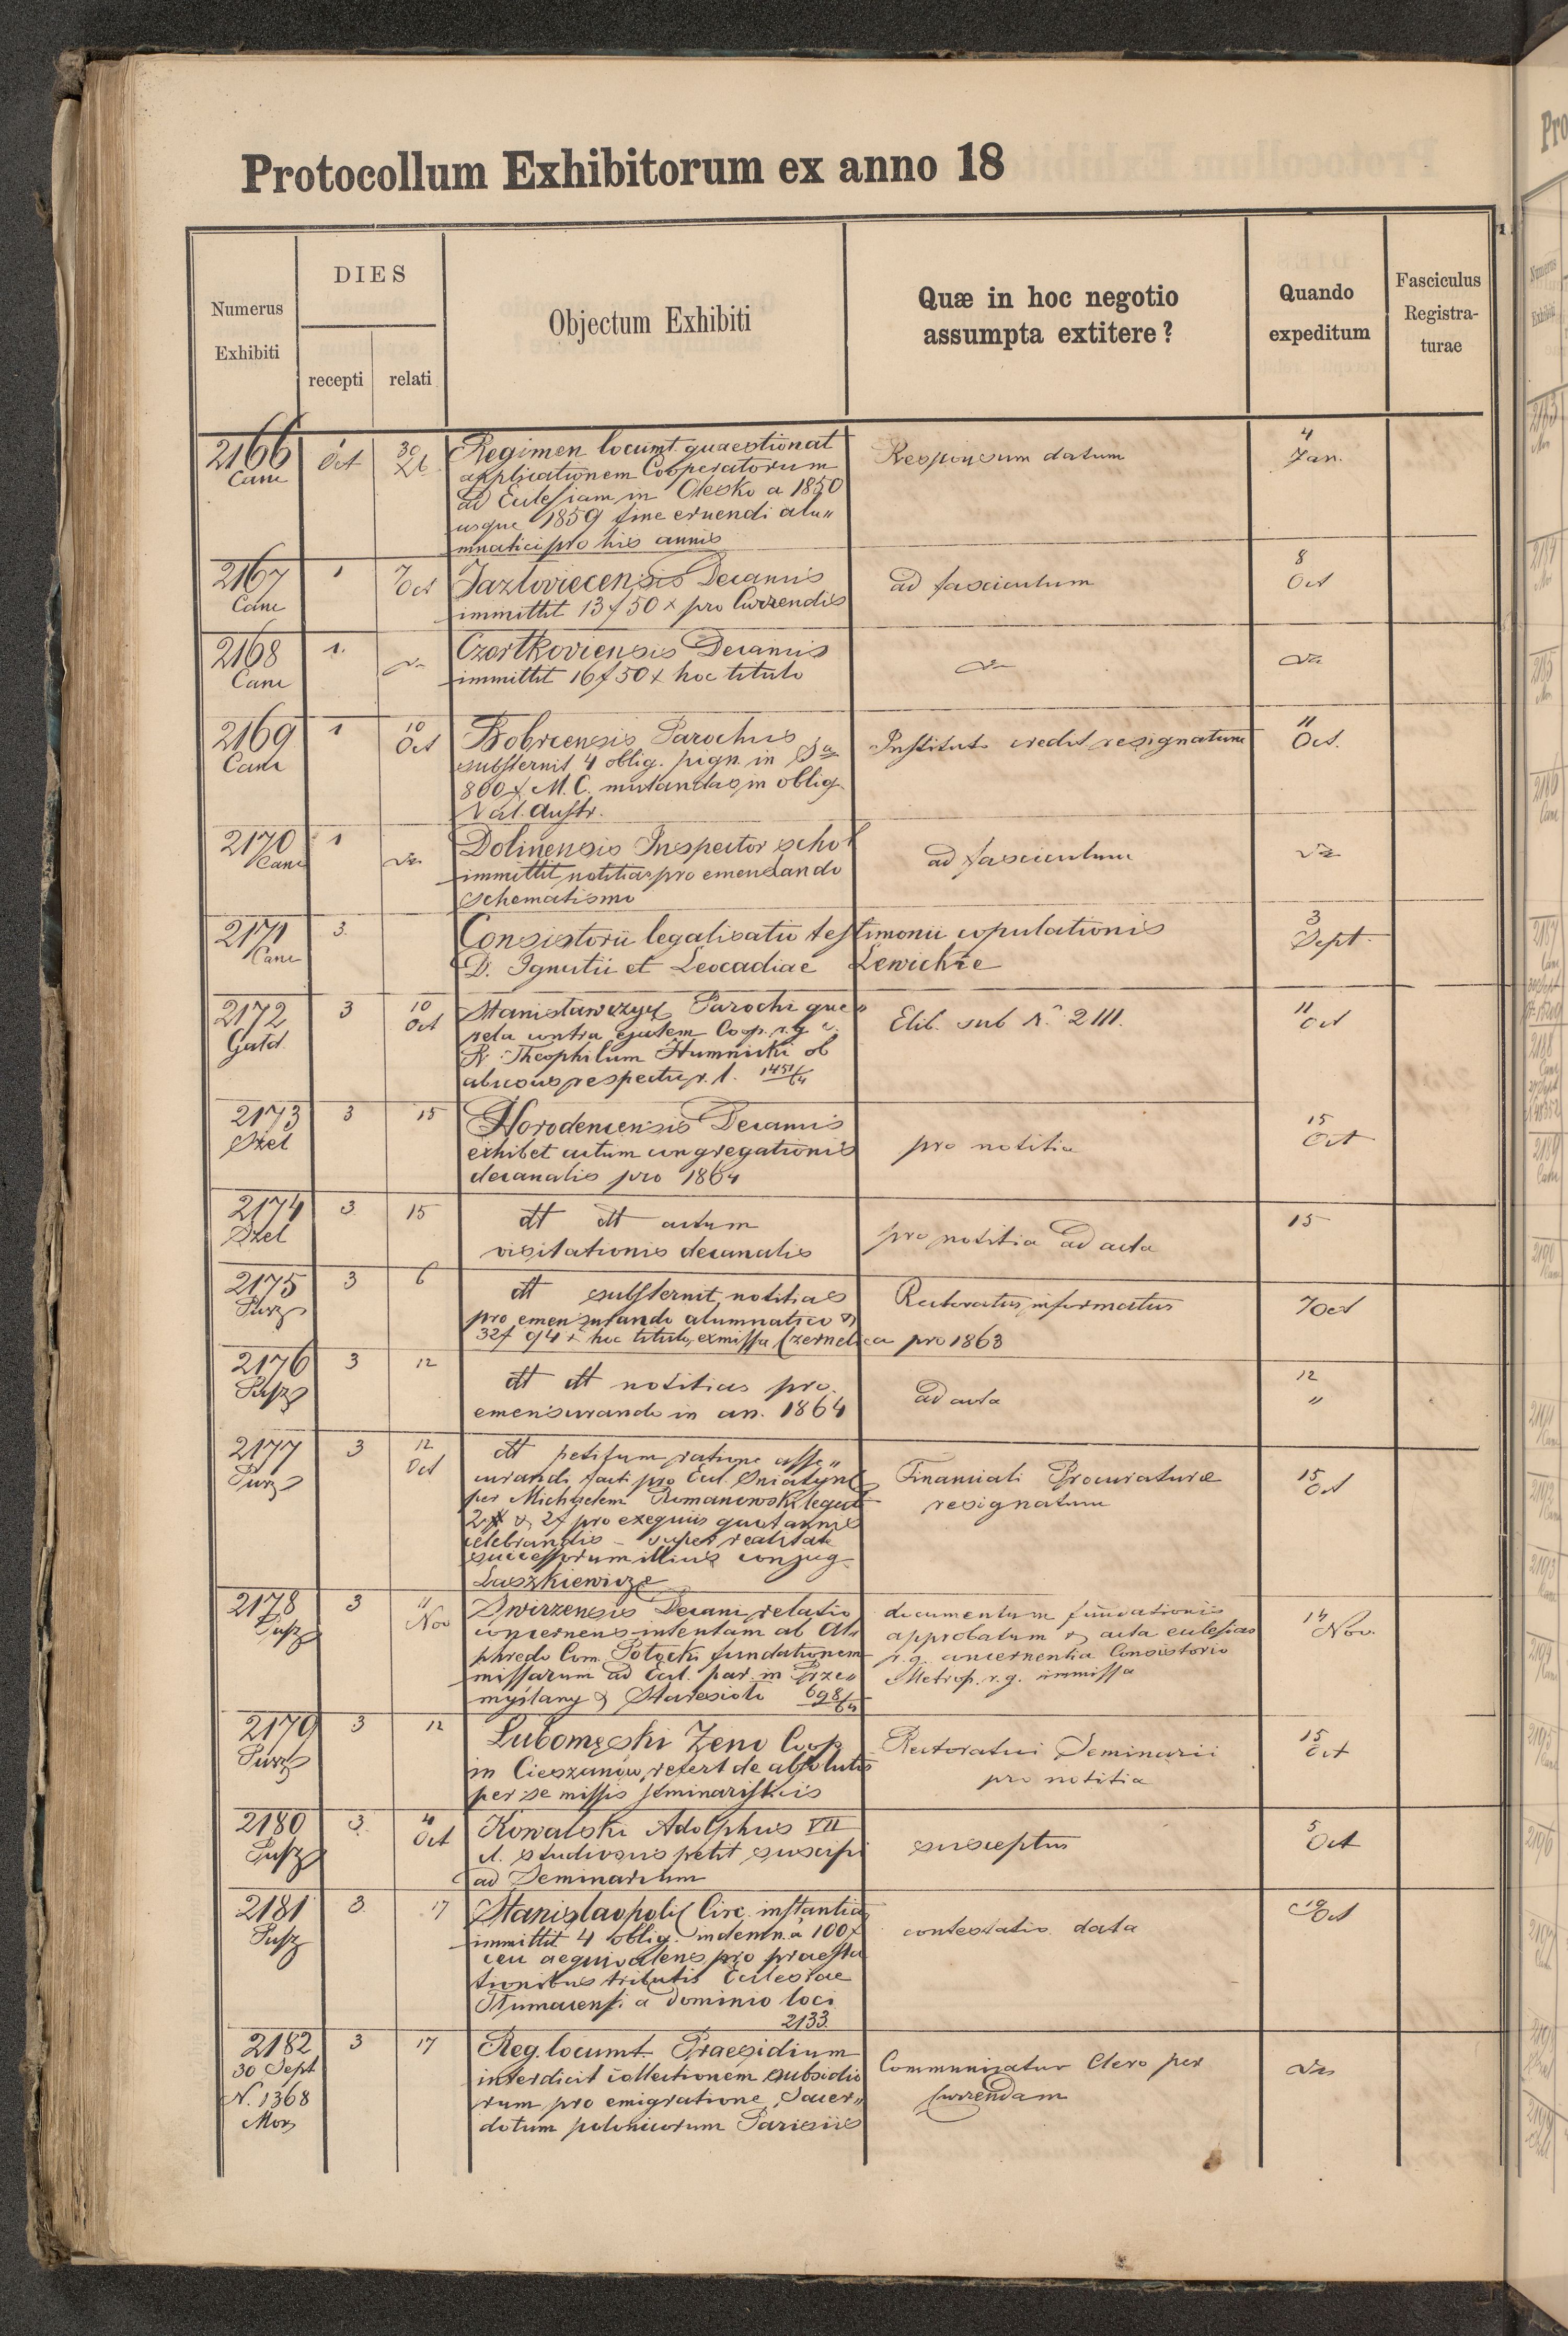 Protocollum Exhibitorum ex anno 18
Numerus Exhibiti
DIES
recepti
relati
Objectum Exhibiti
Quæ in hoc negotio
assumpta extitere?
Quando
expeditum
Fasciculus
Registra-
turae
2166 1 Oct 30 Regimen locumt. quaestionat Responsum datum 4 Jan.
Canc
applicationem Cooperatorum
ad Ecclesiam in Olesko a 1850
usque 1859 fine eruendi alu„
mnatici pro his annis
2167 1 7 Oct Jazloviecensis Decanus ad fasciculum 8 Oct
Canc
immittit 13 f 50 x pro Currendis
2168 1. Czortkoviensis Decanus
Canc
immittit 16 f 50 x hoc titulo
2169 1 10 Oct Bobrcensis Parochus Instituto credit. resignatum 11 Oct.
Canc
substernit 4 oblig. pign. in Sa
800 f M. C. mutandas in oblig.
Val. Austr.
2170 1 Dolinensis Inspector schol ad fasciculum
Canc
immittit notitias pro emendando
schematismo
2171 3. Consistorii legalisatio testimonii copulationis 3 Sept.
Canc
D. Ignatii et Leocadiae Lewickie
2172 3 10 Oct Stanislawczyk Parochi que„ Elib. sub N. 2111. 11 Oct
rela contra ejatem Coop. r. g.
R. Theophilum Humnicki ob
abusus respectu r. l. 1451/64
2173 3 15 Horodencensis Decanus pro notitia 15 Oct
exhibet actum congregationis
decanalis pro 1864
2174 3 15 dt dt actum pro notitia ad acta 15
visitationis decanalis
2175 3 6 dt substernit notitias Rectoratus informatus 7 Oct
pro emensurando alumnatico &
32 f 94 x hoc titulo, exmissa Czernelica pro 1863
2176 3 12 dt dt notitias pro ad acta 12 „
emensurando in an. 1864
2177 3 12 Oct dt petitum ratione asse„ Financiali Procuraturæ 15 Oct
curandi facti pro Eccl. Sniatyne resignatum
per Michaelem Romanowski legati
2 & 2 f pro exequiis quotannis
celebrandis – super realitate
successorum illius conjug.
Laszkiewicze
2178 3 11 Nov Swirzensis Decani relatio documentum fundationis 14 Nov.
concernens intentam ab Al„ approbatum & acta ecclesias
phredo Com. Potocki fundationem r. g. concernentia Consistorio
missarum ad Eccl. par. in Prze„ Metrop. r. g. immissa
myślany & Staresioło 698/64
2179 3 12 Lubomęski Zeno Coop. Rectoratui Seminarii 15 Oct
in Cieszanów, refert de absolutis pro notitia
per se missis seminaristicis
2180 3. 4 Oct Kowalski Adolphus VII susceptus 5 Oct
cl. studiosus petit suscipi
ad Seminarium
2181 3. 17 Stanislaopoli Circ. instantia contestatio data 19 Oct
immittit 4 oblig. indemn. à 100 f
ceu aequivalens pro praesta
tionibus tributis Ecclesiae
Tlumacensi a dominio loci
2133.
2182 3 17 Reg. locumt. Praesidium Communicatur Clero per
30 Sept
interdicit collectionem subsidio Currendam
N. 1368
rum pro emigratione Sacer„
dotum polonicorum Parisiis